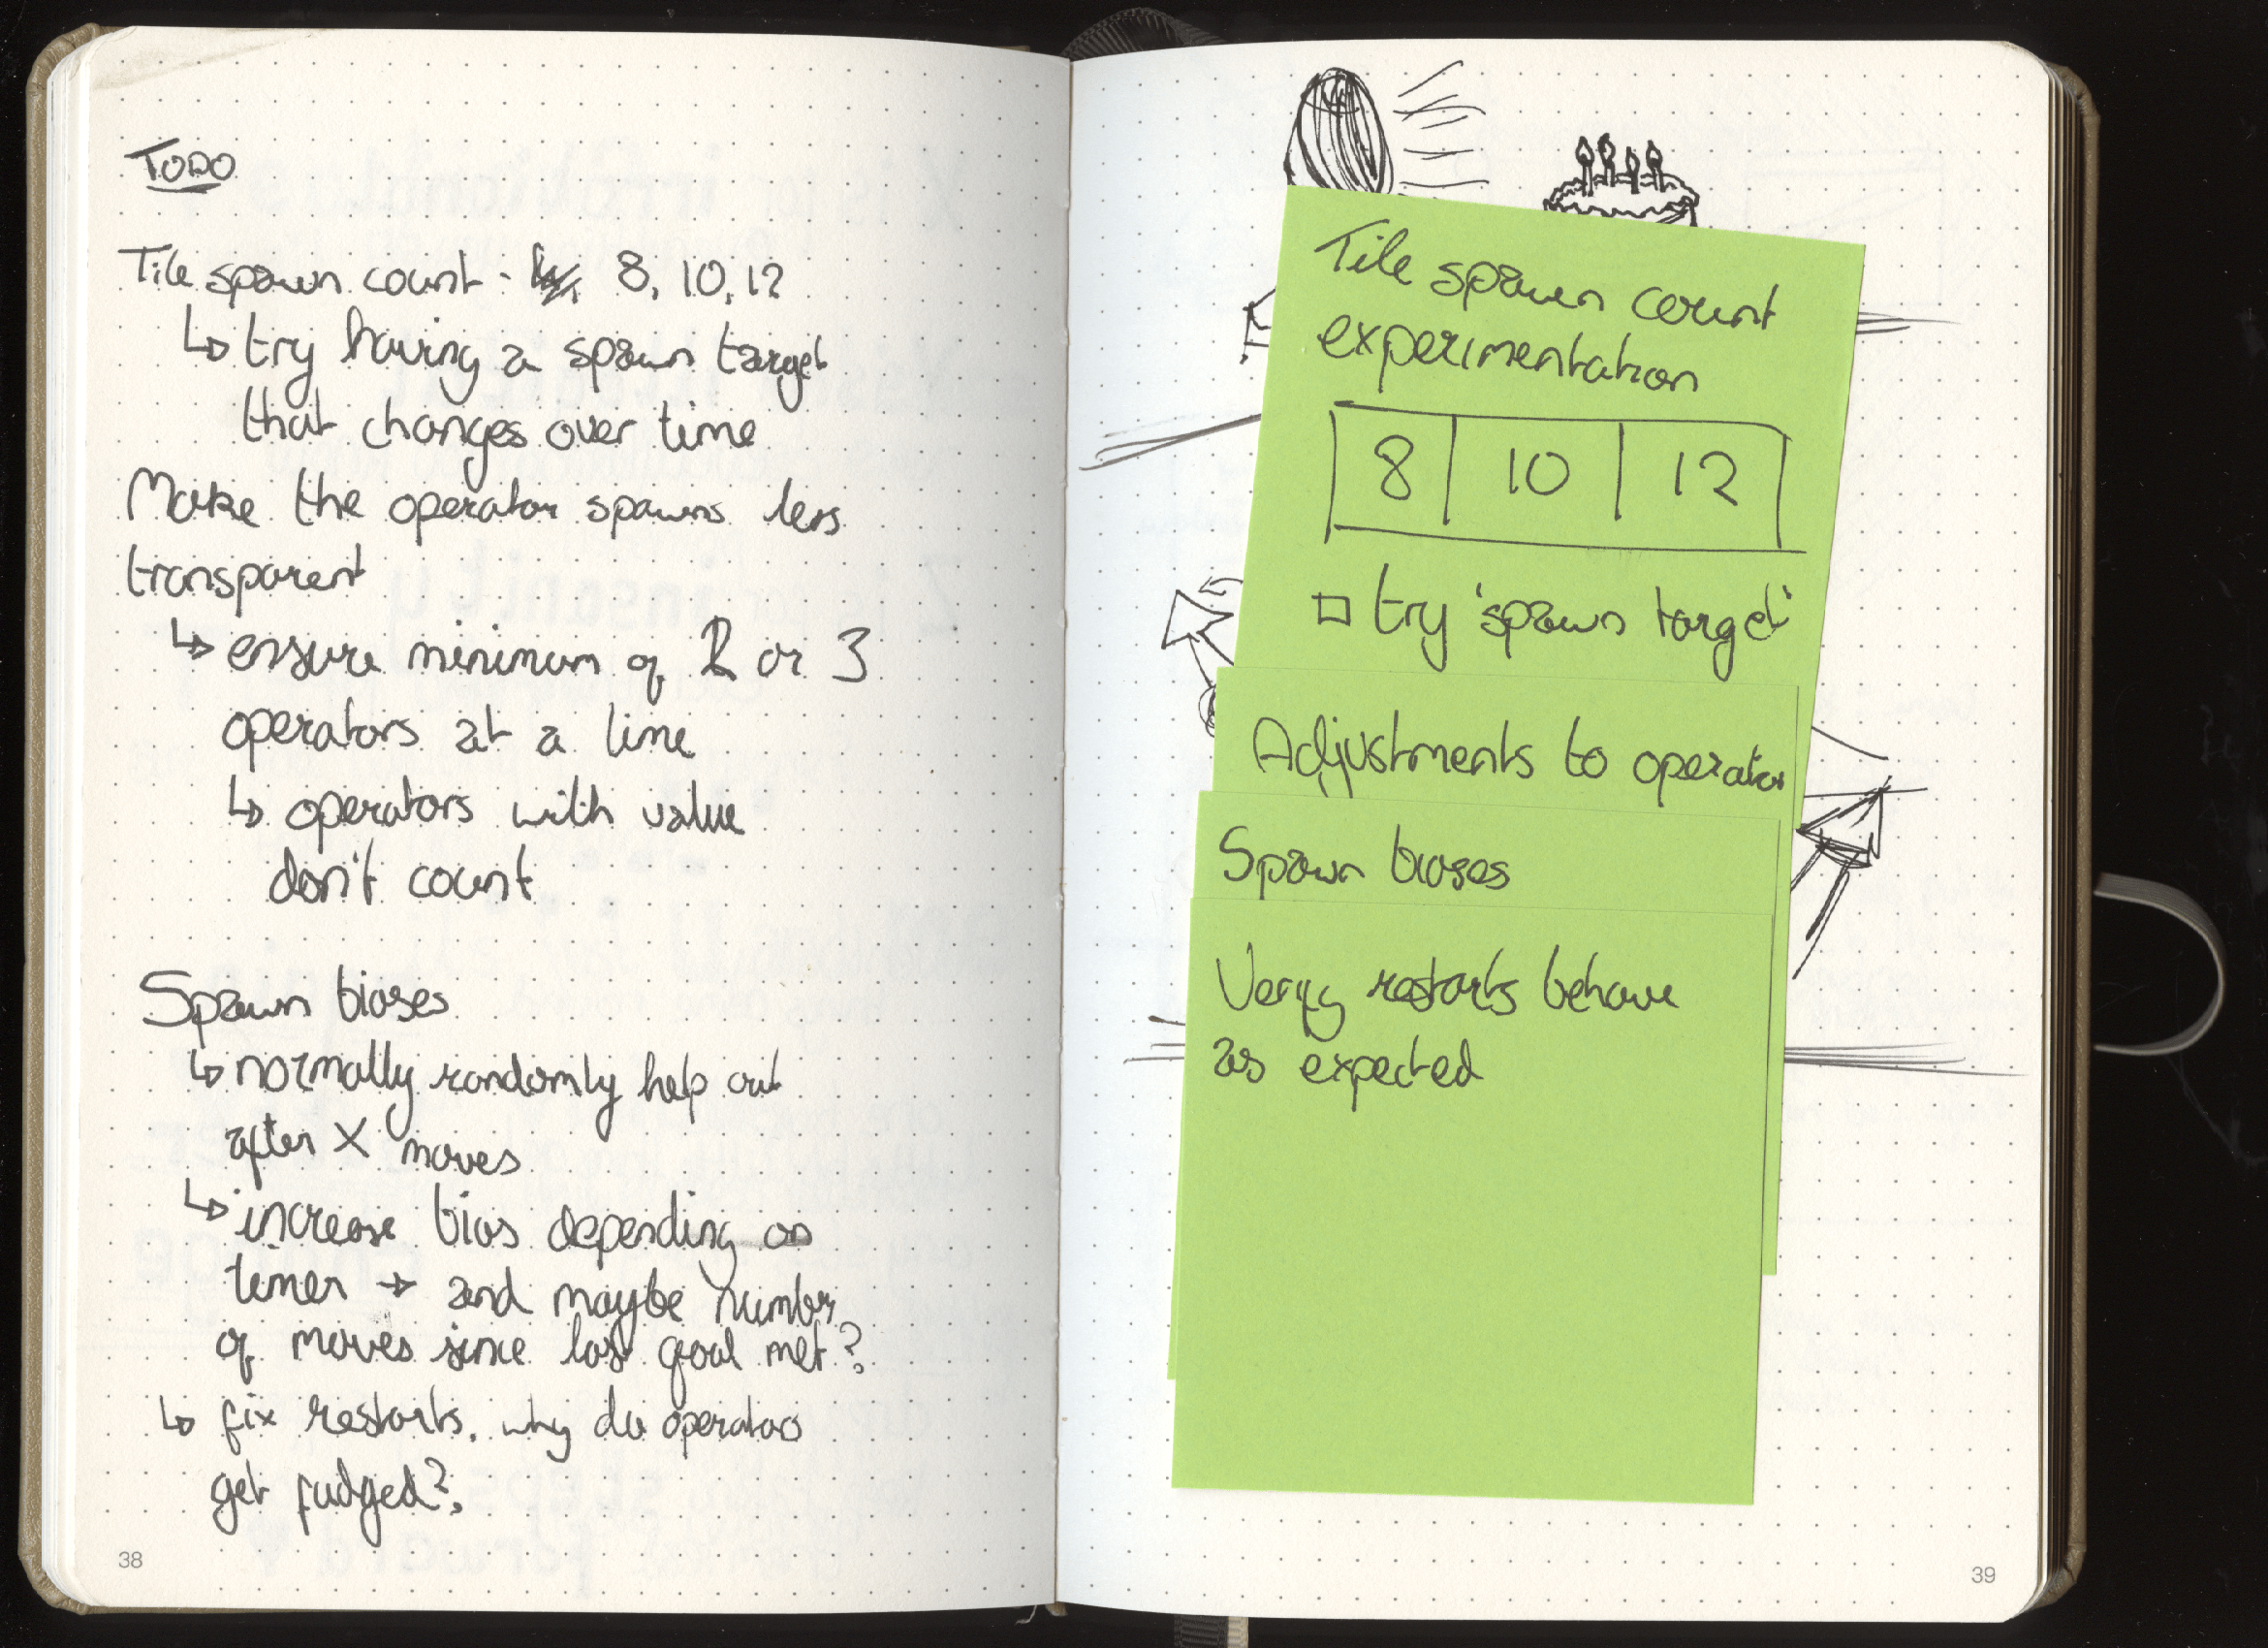 TODO
Tile spawn count - 8, 10, 12
↳ try having a spawn target
that changes over time
Make the operator spawns less
transparent
↳ ensure minimum of 2 or 3
operators at a time
↳ operators with value
don't count
Spawn biases
↳ normally randomly help out
after X moves
↳ increase bias depending on
timer → and maybe number
of moves since last goal met?
↳ fix restarts. why do operators
get fudged?
38
Tile spawn count
experimentation
8 10 12
□ try 'spawn target'
Adjustments to operator
Spawn biases
Verify restarts behave
as expected
39